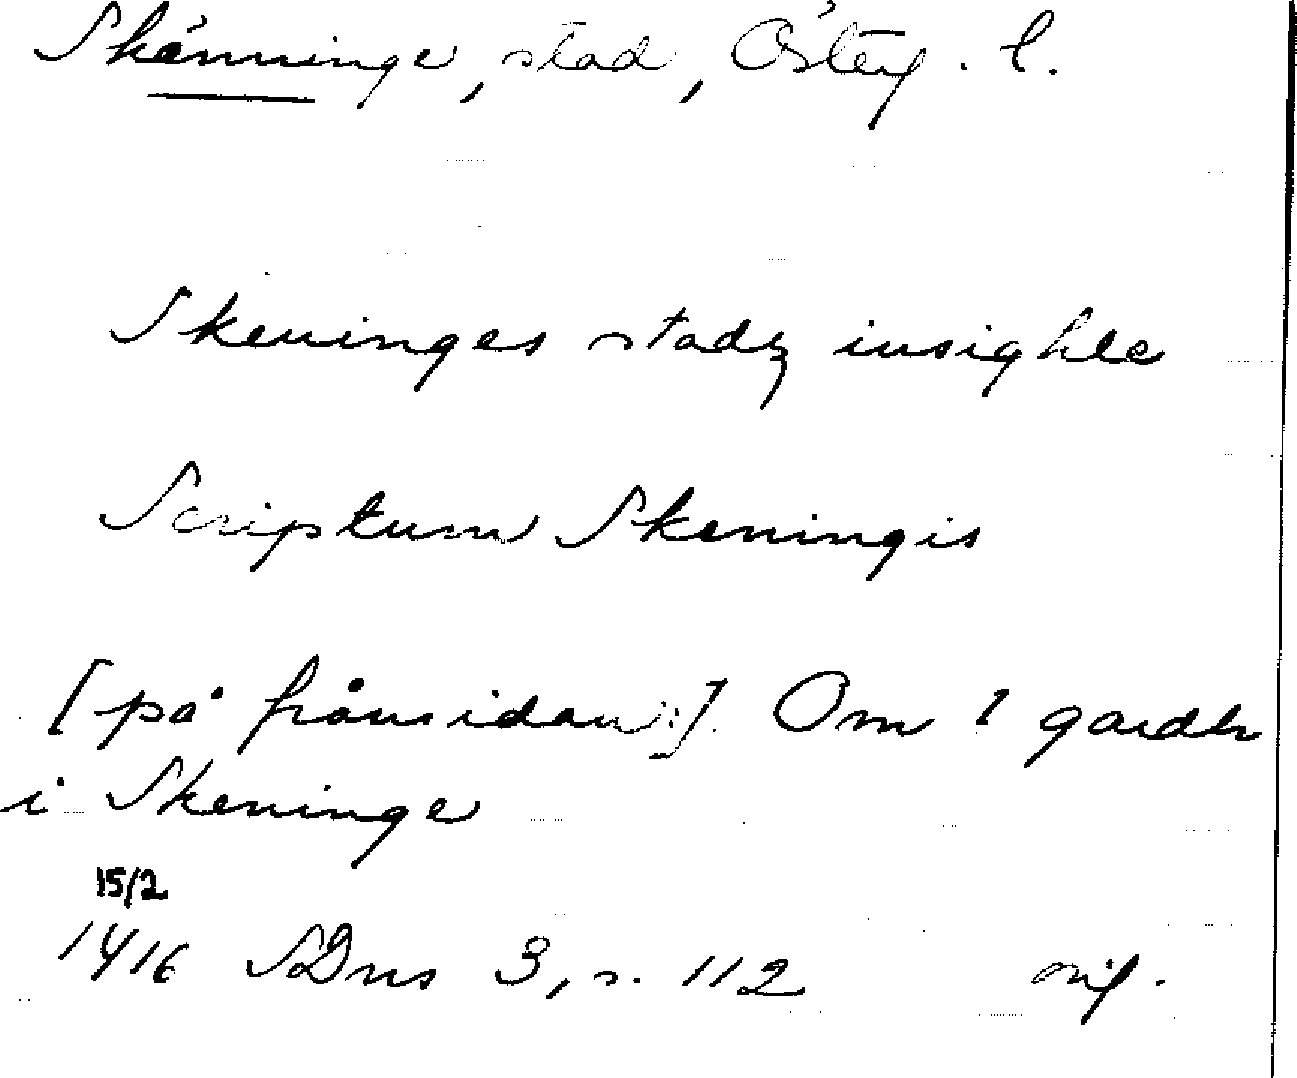 Skänninge, stad, Östg. l.
Skeninges stadz insighle
Scriptum Skeningis
[på frånsidan:]. Om 1 gardh
i Skeninge
15/2
1416 SDns 3, s. 112 orig.